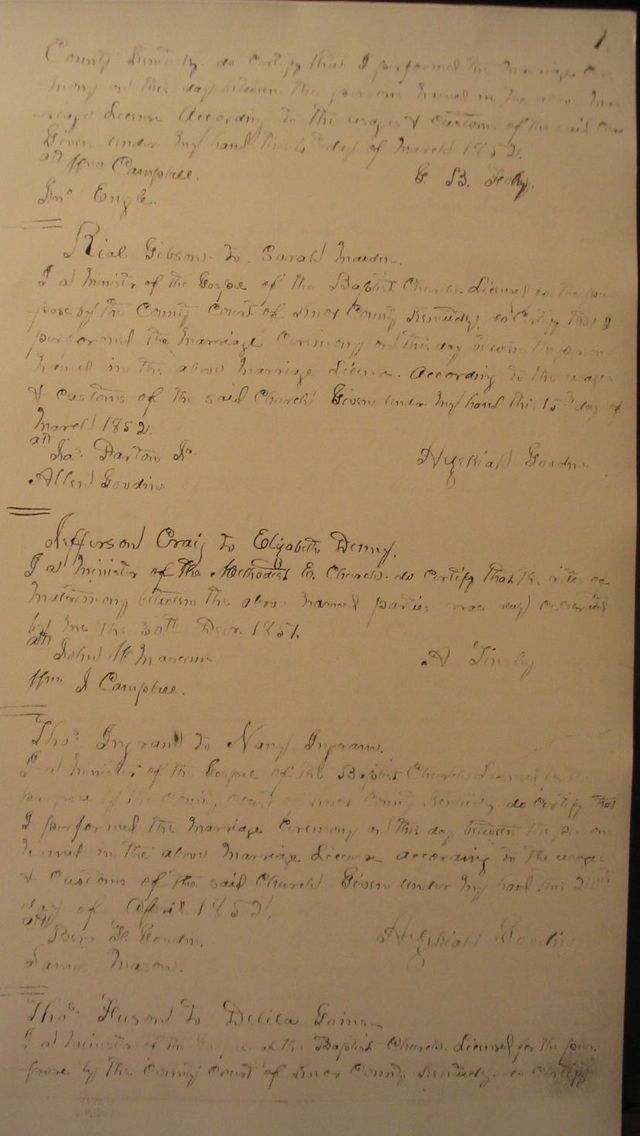 1
County Kentucky do certify that I performed the marriage Cere
mony on this day between the persons named in the above mar
riage License According to the usages & customs of the said Church
Given under my hand this 4th day of March 1852.
att Wm Campbell. G. B.
Jno Engle.
Rial Gibson to Sarah
I a minister of the Gospel of the Baptist Church Licensed for the pur
pose by the County Court of Knox County Kentucky do certify that I
performed the marriage Ceremony on this day between the persons
named in the above marriage License. According to the usages
& customs of the said Church Given under my hand this 15th day of
March 1852.
att
Jas. Parton Jr. Hezekiah Goodin
Allen Goodin
Jefferson Craig to Elizabeth Denny.
I a minister of the Methodist E. Church. do certify that the rites of
matrimony between the above named parties was duly
by me the 30th Decr. 1851.
att
John W A Tinsley
Wm J Campbell.
Thos. Ingram to Nancy Ingram.
I a minister of the Gospel of the Baptist Church Licensed for the
purpose by the County Court of Knox County Kentucky do certify that
I performed the marriage Ceremony on this day between the persons
named in the above marriage License according to the usages
& customs of the said Church Given under my hand this
day of April 1852.
att
Hezekiah Goodin
James Mason.
Thos. to Delila
I a minister of the Gospel of the Baptist Church Licensed for the pur
pose by the County Court of Knox County Kentucky do certify